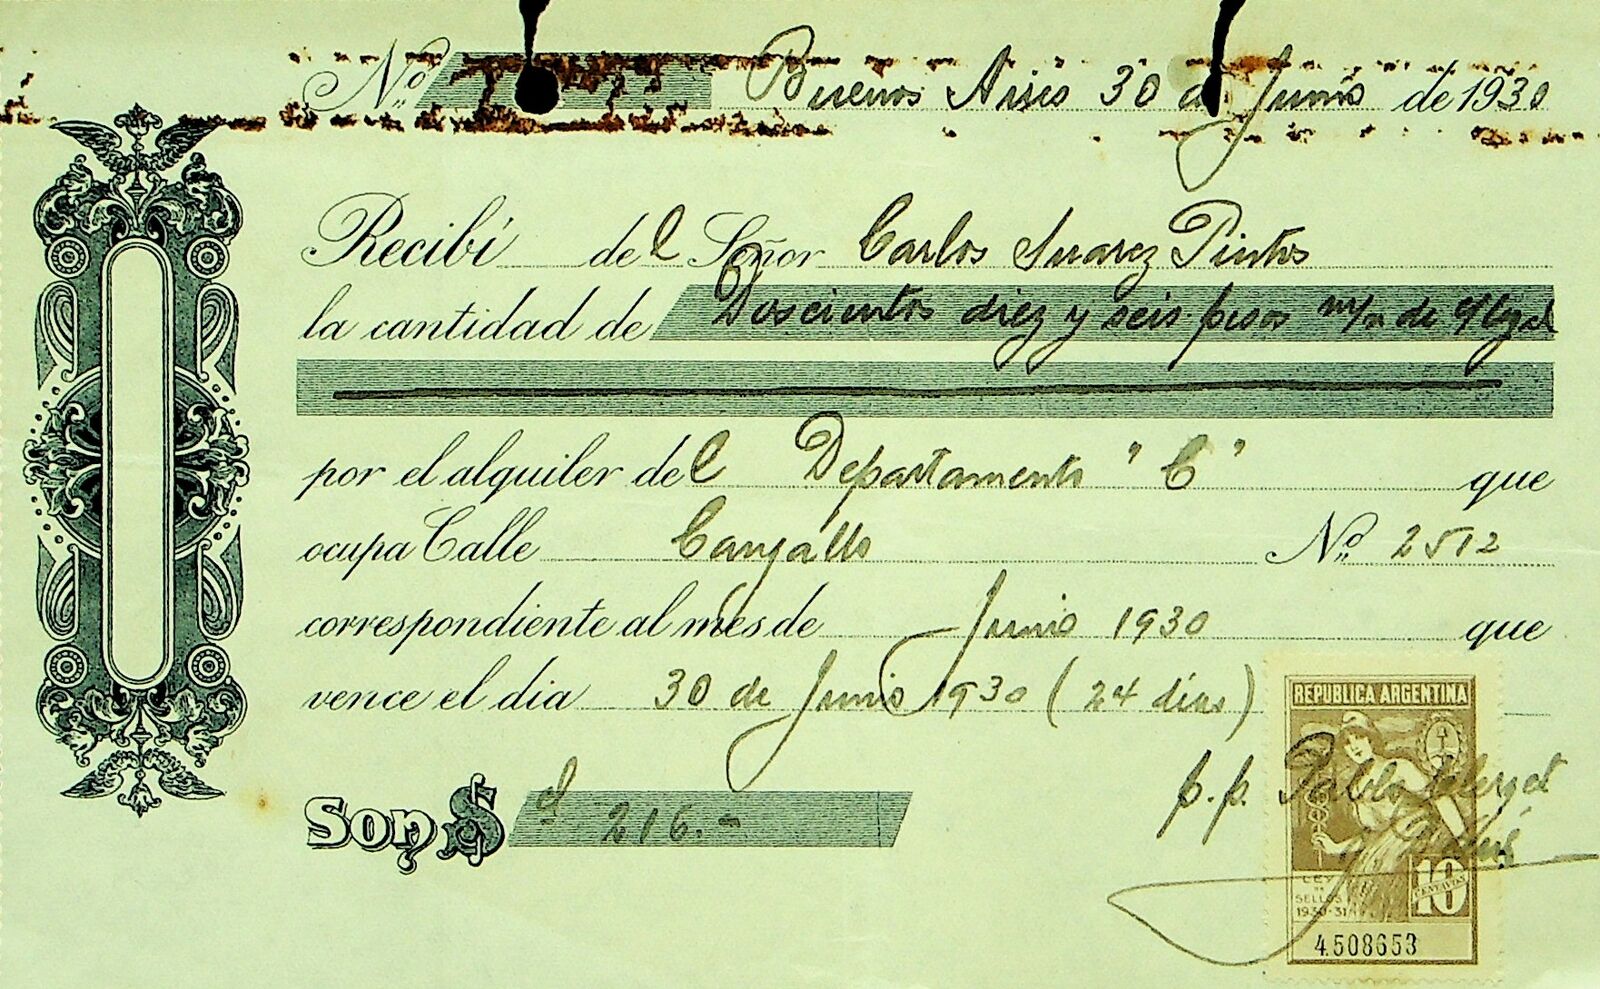 Nº Buenos Aires 30 de Junio de 1930
Recibí del Señor Carlos Suarez Pintos
la cantidad de Doscientos diez y seis pesos m/n de c/legal
por el alquiler del Departamento "C" que
ocupa Calle Cangallo Nº 2512
correspondiente al mes de Junio 1930 que
vence el dia 30 de Junio 1930 (24 días)
Son $ 216.-
p.p. Pablo
REPUBLICA ARGENTINA
LEY
DE
SELLOS
1930-31
10
CENTAVOS
4.508653